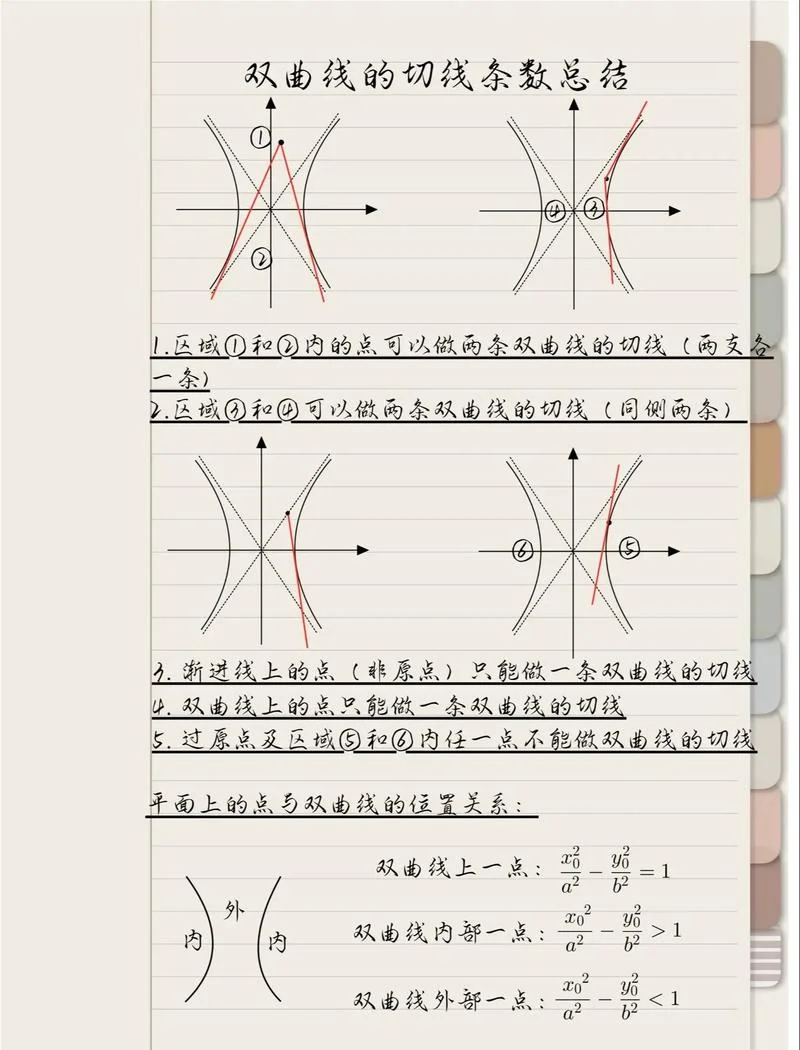 双曲线的切线条数总结
①
②
④ ③
1.区域①和②内的点可以做两条双曲线的切线（两支各
一条）
2.区域③和④可以做两条双曲线的切线（同侧两条）
⑥ ⑤
3.渐进线上的点（非原点）只能做一条双曲线的切线
4.双曲线上的点只能做一条双曲线的切线
5.过原点及区域⑤和⑥内任一点不能做双曲线的切线
平面上的点与双曲线的位置关系：
双曲线上一点：x₀²/a² − y₀²/b² = 1
外
内 内
双曲线内部一点：x₀²/a² − y₀²/b² > 1
双曲线外部一点：x₀²/a² − y₀²/b² < 1